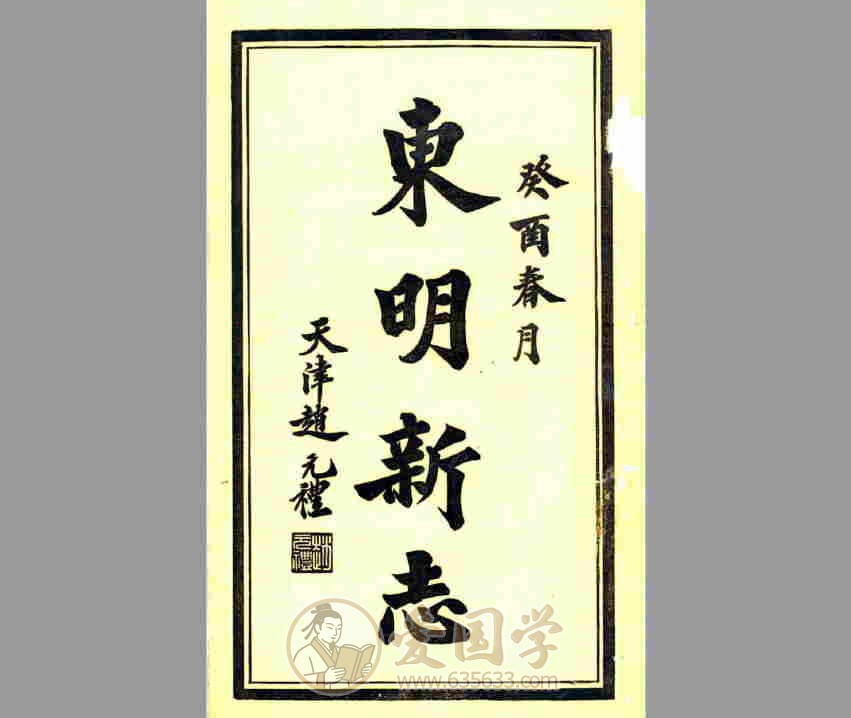 癸酉春月
東明新志
天津趙元禮
趙元禮
爱国学
www.635633.com